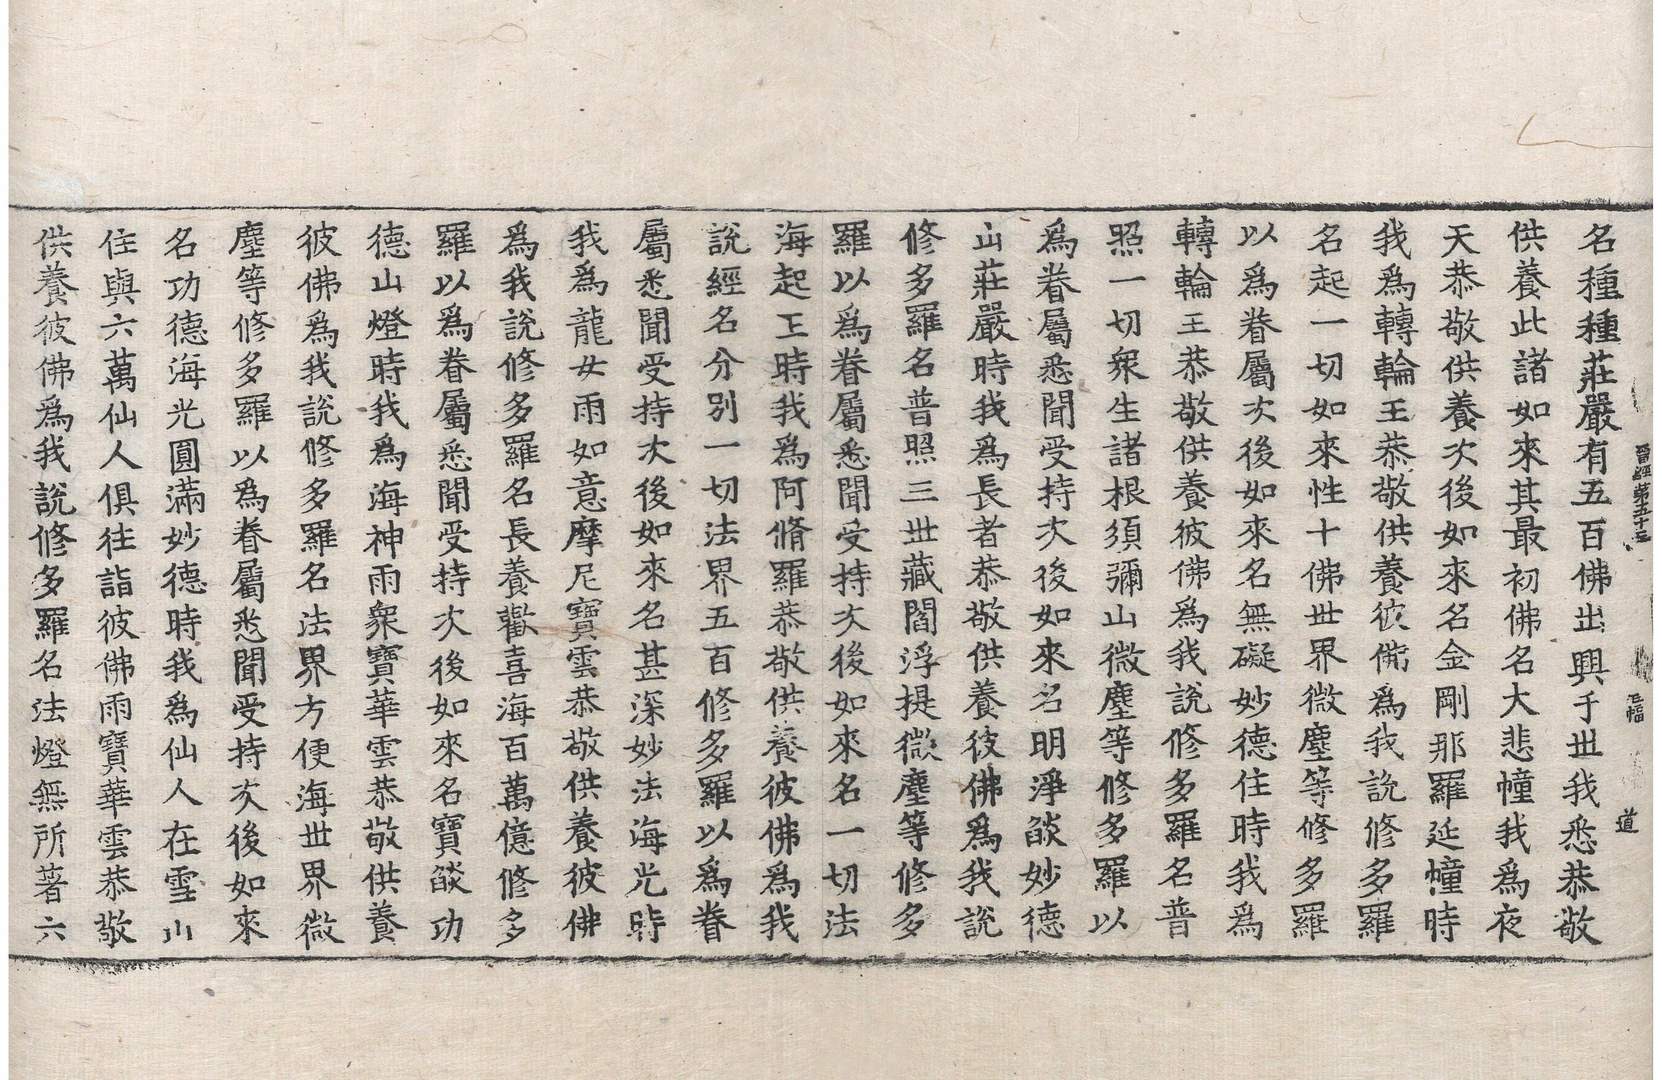 晉經第五十三
道
名種種莊嚴有五百佛出興于世我悉恭敬
供養此諸如來其最初佛名大悲幢我爲夜
天恭敬供養次後如來名金剛那羅延幢時
我爲轉輪王恭敬供養彼佛爲我說修多羅
名起一切如來性十佛世界微塵等修多羅
以爲眷屬次後如來名無礙妙德住時我爲
轉輪王恭敬供養彼佛爲我說修多羅名普
照一切衆生諸根須彌山微塵等修多羅以
爲眷屬悉聞受持次後如來名明淨燄妙德
山莊嚴時我爲長者恭敬供養彼佛爲我說
修多羅名普照三世藏閻浮提微塵等修多
羅以爲眷屬悉聞受持次後如來名一切法
海起王時我爲阿脩羅恭敬供養彼佛爲我
說經名分別一切法界五百修多羅以爲眷
屬悉聞受持次後如來名甚深妙法海光時
我爲龍女雨如意摩尼寶雲恭敬供養彼佛
爲我說修多羅名長養歡喜海百萬億修多
羅以爲眷屬悉聞受持次後如來名寶燄功
德山燈時我爲海神雨衆寶華雲恭敬供養
彼佛爲我說修多羅名法界方便海世界微
塵等修多羅以爲眷屬悉聞受持次後如來
名功德海光圓滿妙德時我爲仙人在雪山
住與六萬仙人俱往詣彼佛雨寶華雲恭敬
供養彼佛爲我說修多羅名法燈無所著六